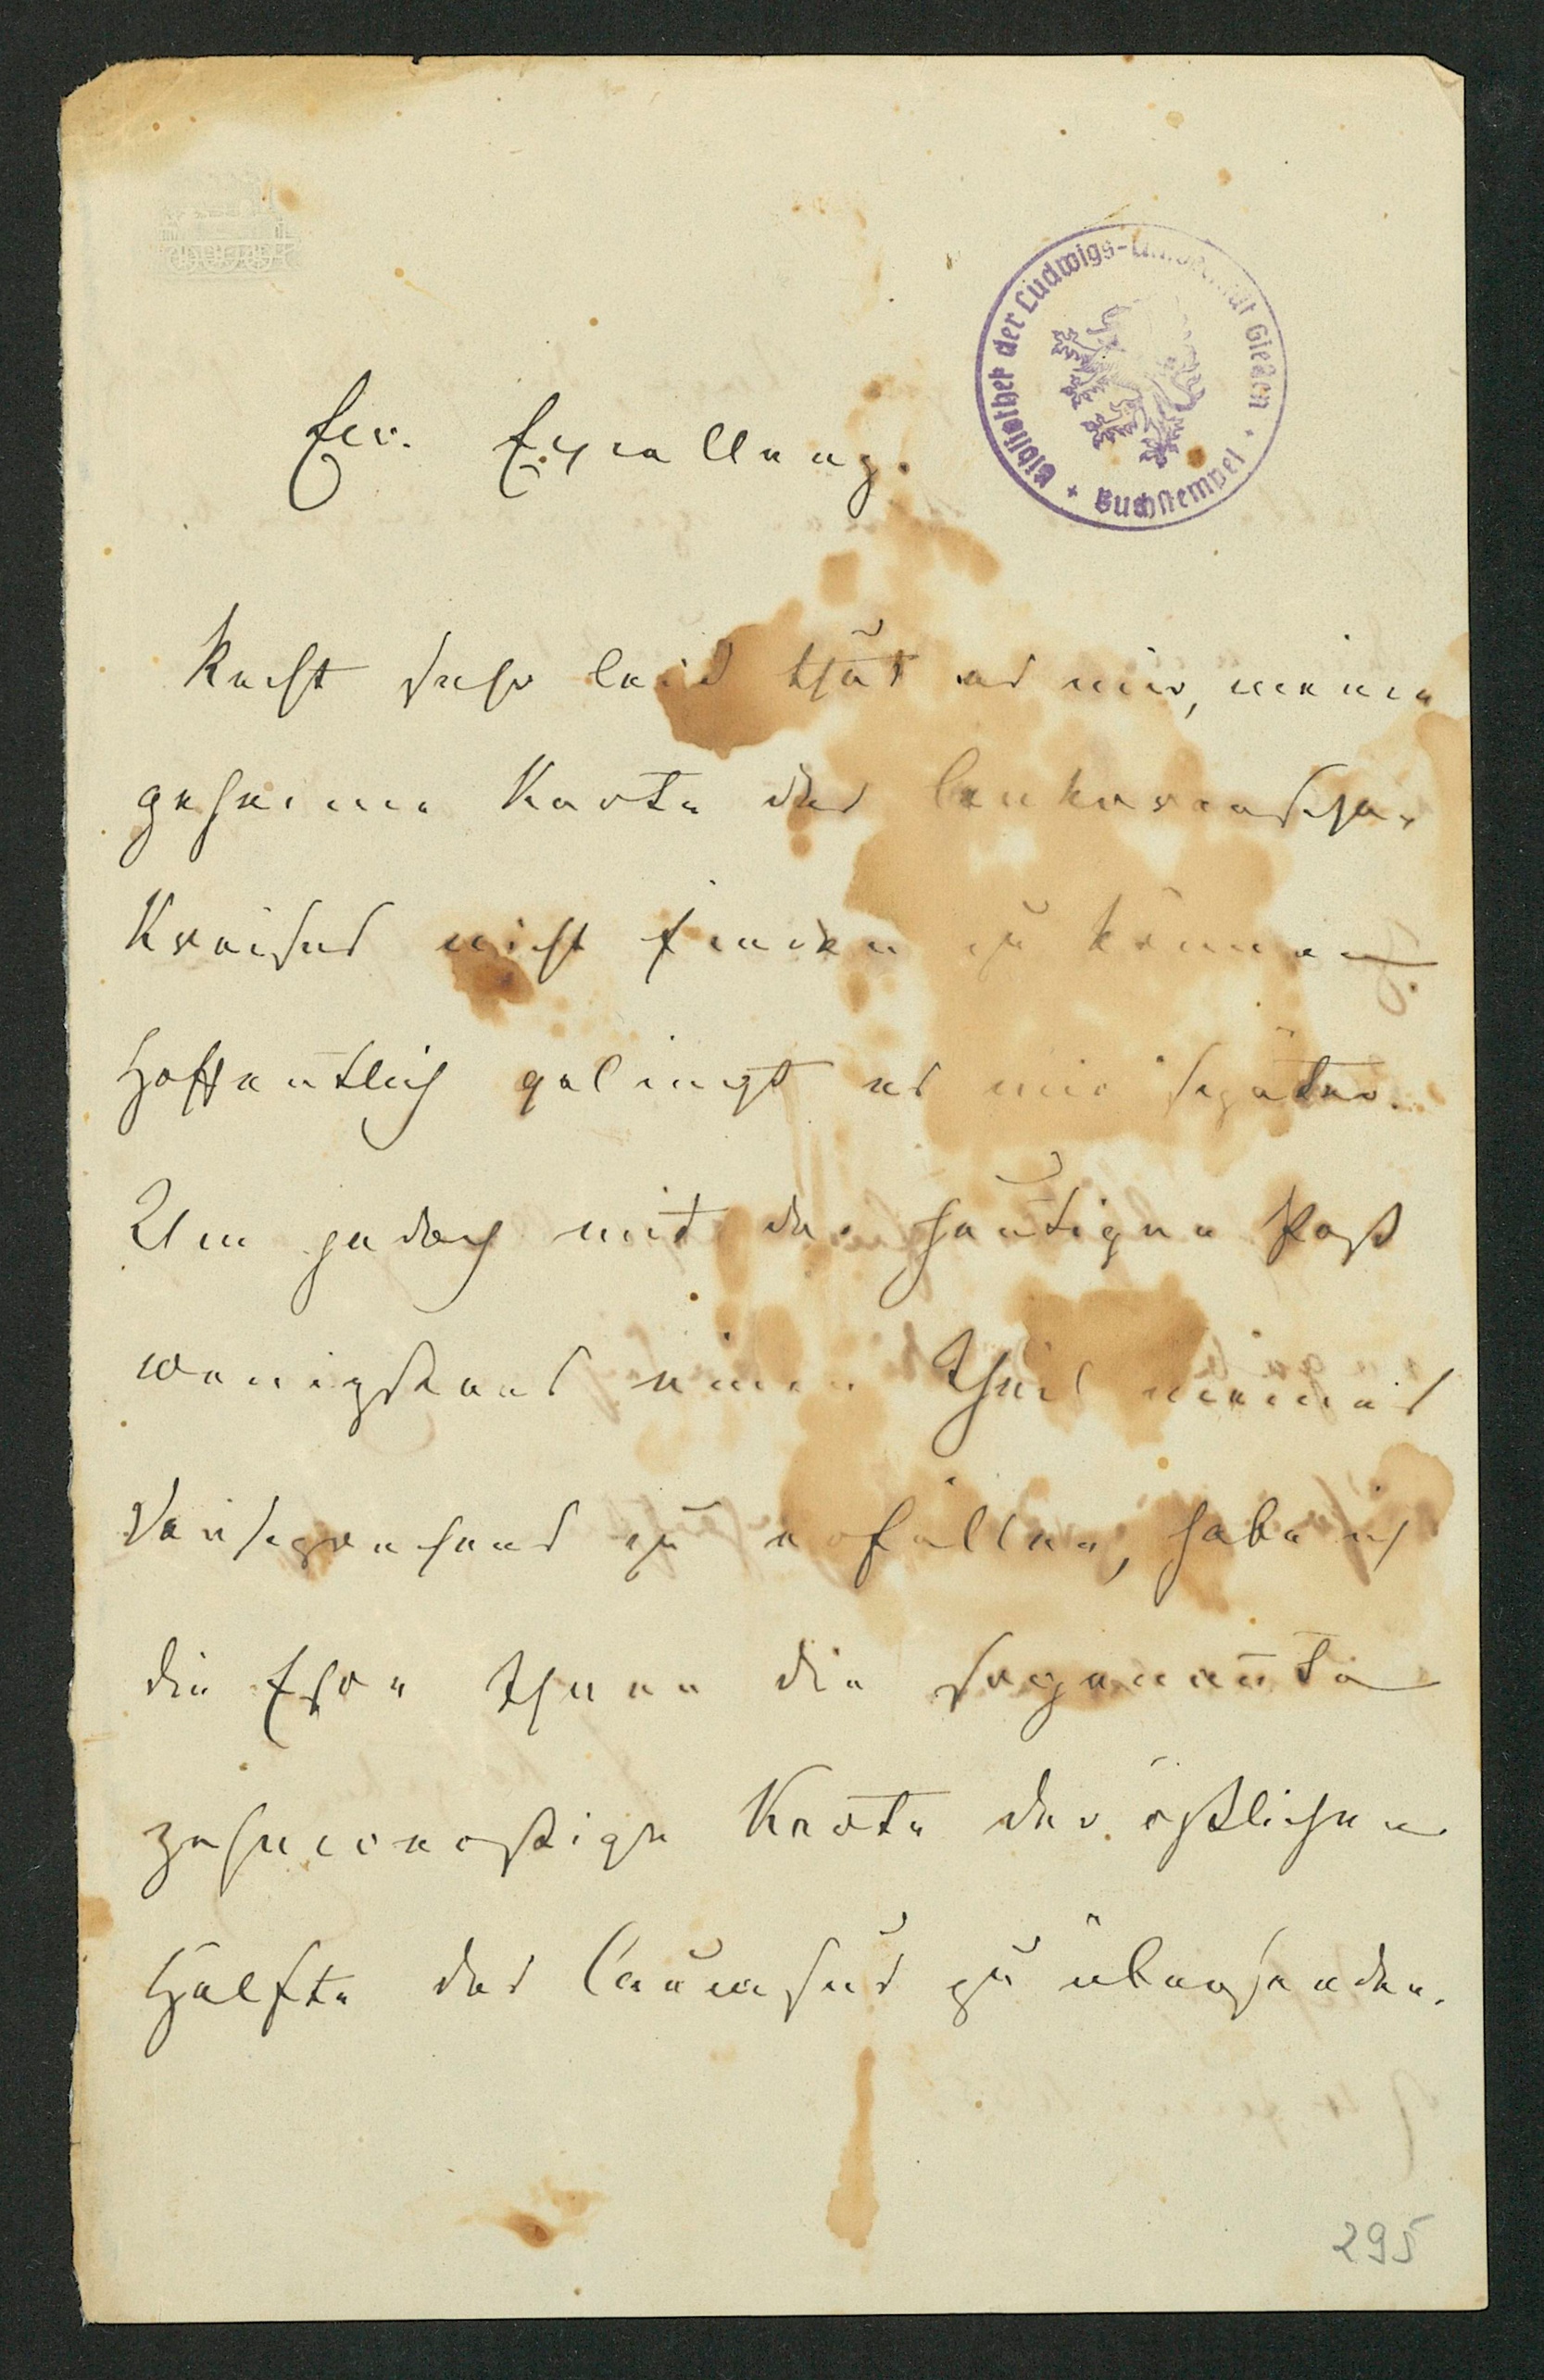 Bibliothek der Ludwigs-Universität Gießen
+ Buchstempel +
Ew. Excellenz.
Recht sehr leid thut es mir, meine
geheime Karte des lenkoranschen
Kreises nicht finden zu können.
Hoffentlich gelingt es mir später.
Um jedoch mit der heutigen Post
wenigstens einen Theil meines
Versprechens zu erfüllen, habe ich
die Ehre Ihnen die sogenannte
zehnwerstige Karte der östlichen
Hälfte des Caucasus zu übersenden.
295